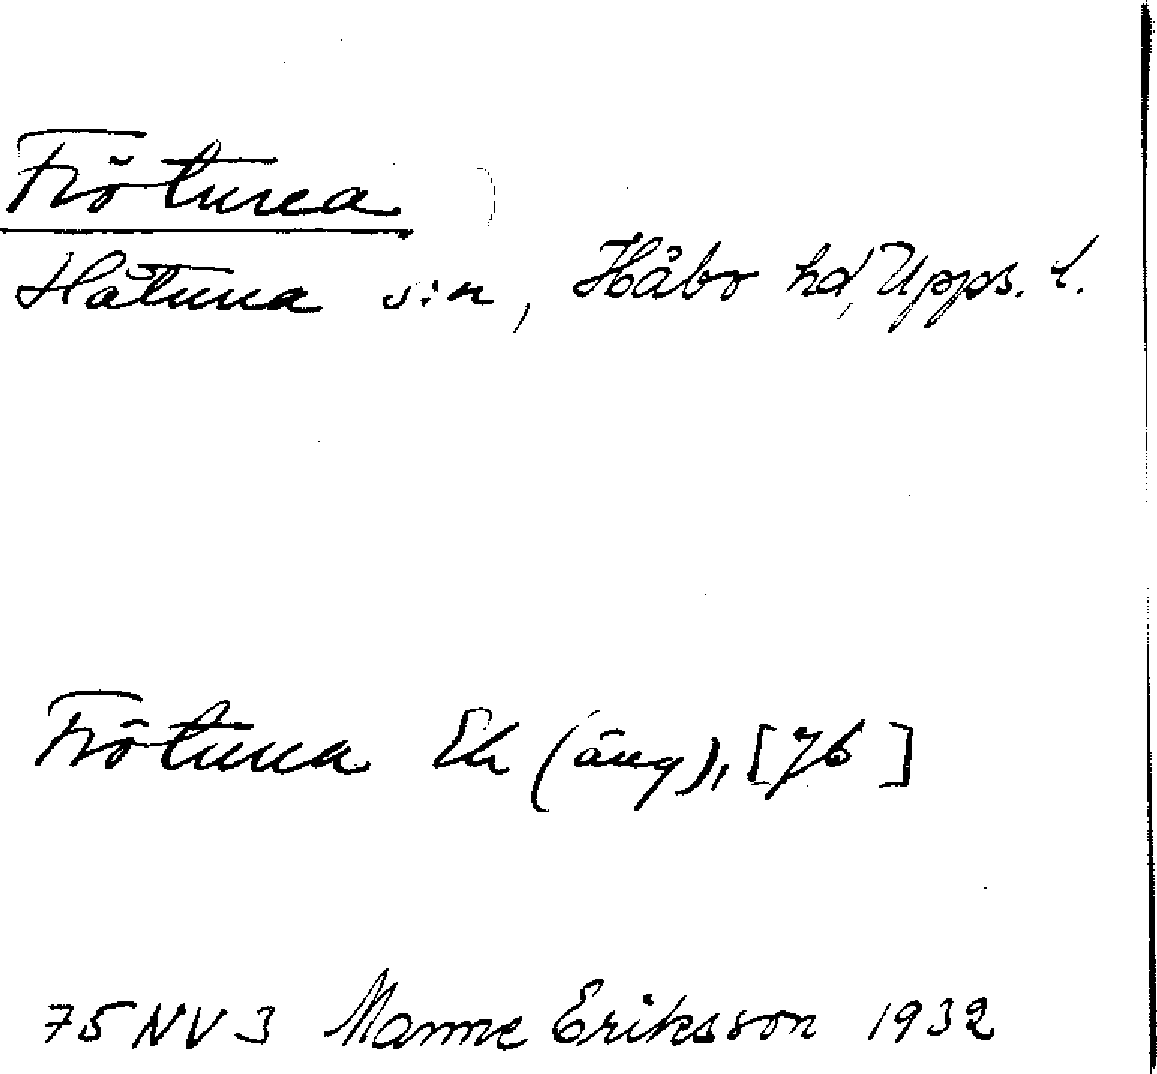 Frötuna
Håtuna s:n, Håbo hd, Upps. l.
Frötuna Ek (äng), [76]
75 NV 3 Manne Eriksson 1932